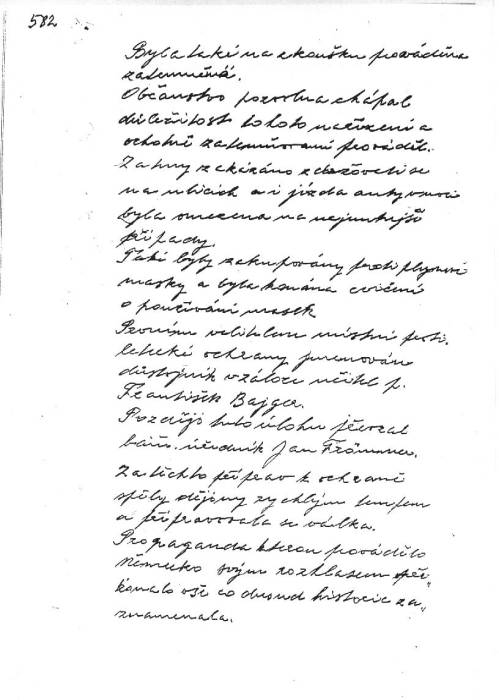 582
Byla také na zkoušku prováděna
zatemnění.
Občanstvo pozvolna chápal
důležitost tohoto nařízení a
ochotně zatemňování provádět.
Za tmy zakázáno zdržovati se
na ulicích a i jízda auty
byla omezena na nejnutnější
případy.
Také byly zakupovány proti plynové
masky a byla konána cvičení
o používání masek
Prvním velitelem místní proti,
letecké ochrany jmenován
důstojník v záloze učitel p.
František Bajger.
Později tuto úlohu převzal
báň. úředník Jan
Za těchto příprav k ochraně
spěly dějiny rychlým tempem
a připravovala se válka.
Propaganda kterou provádělo
Německo svým rozhlasem pře,
konalo vše co dosud historie za,
znamenala.